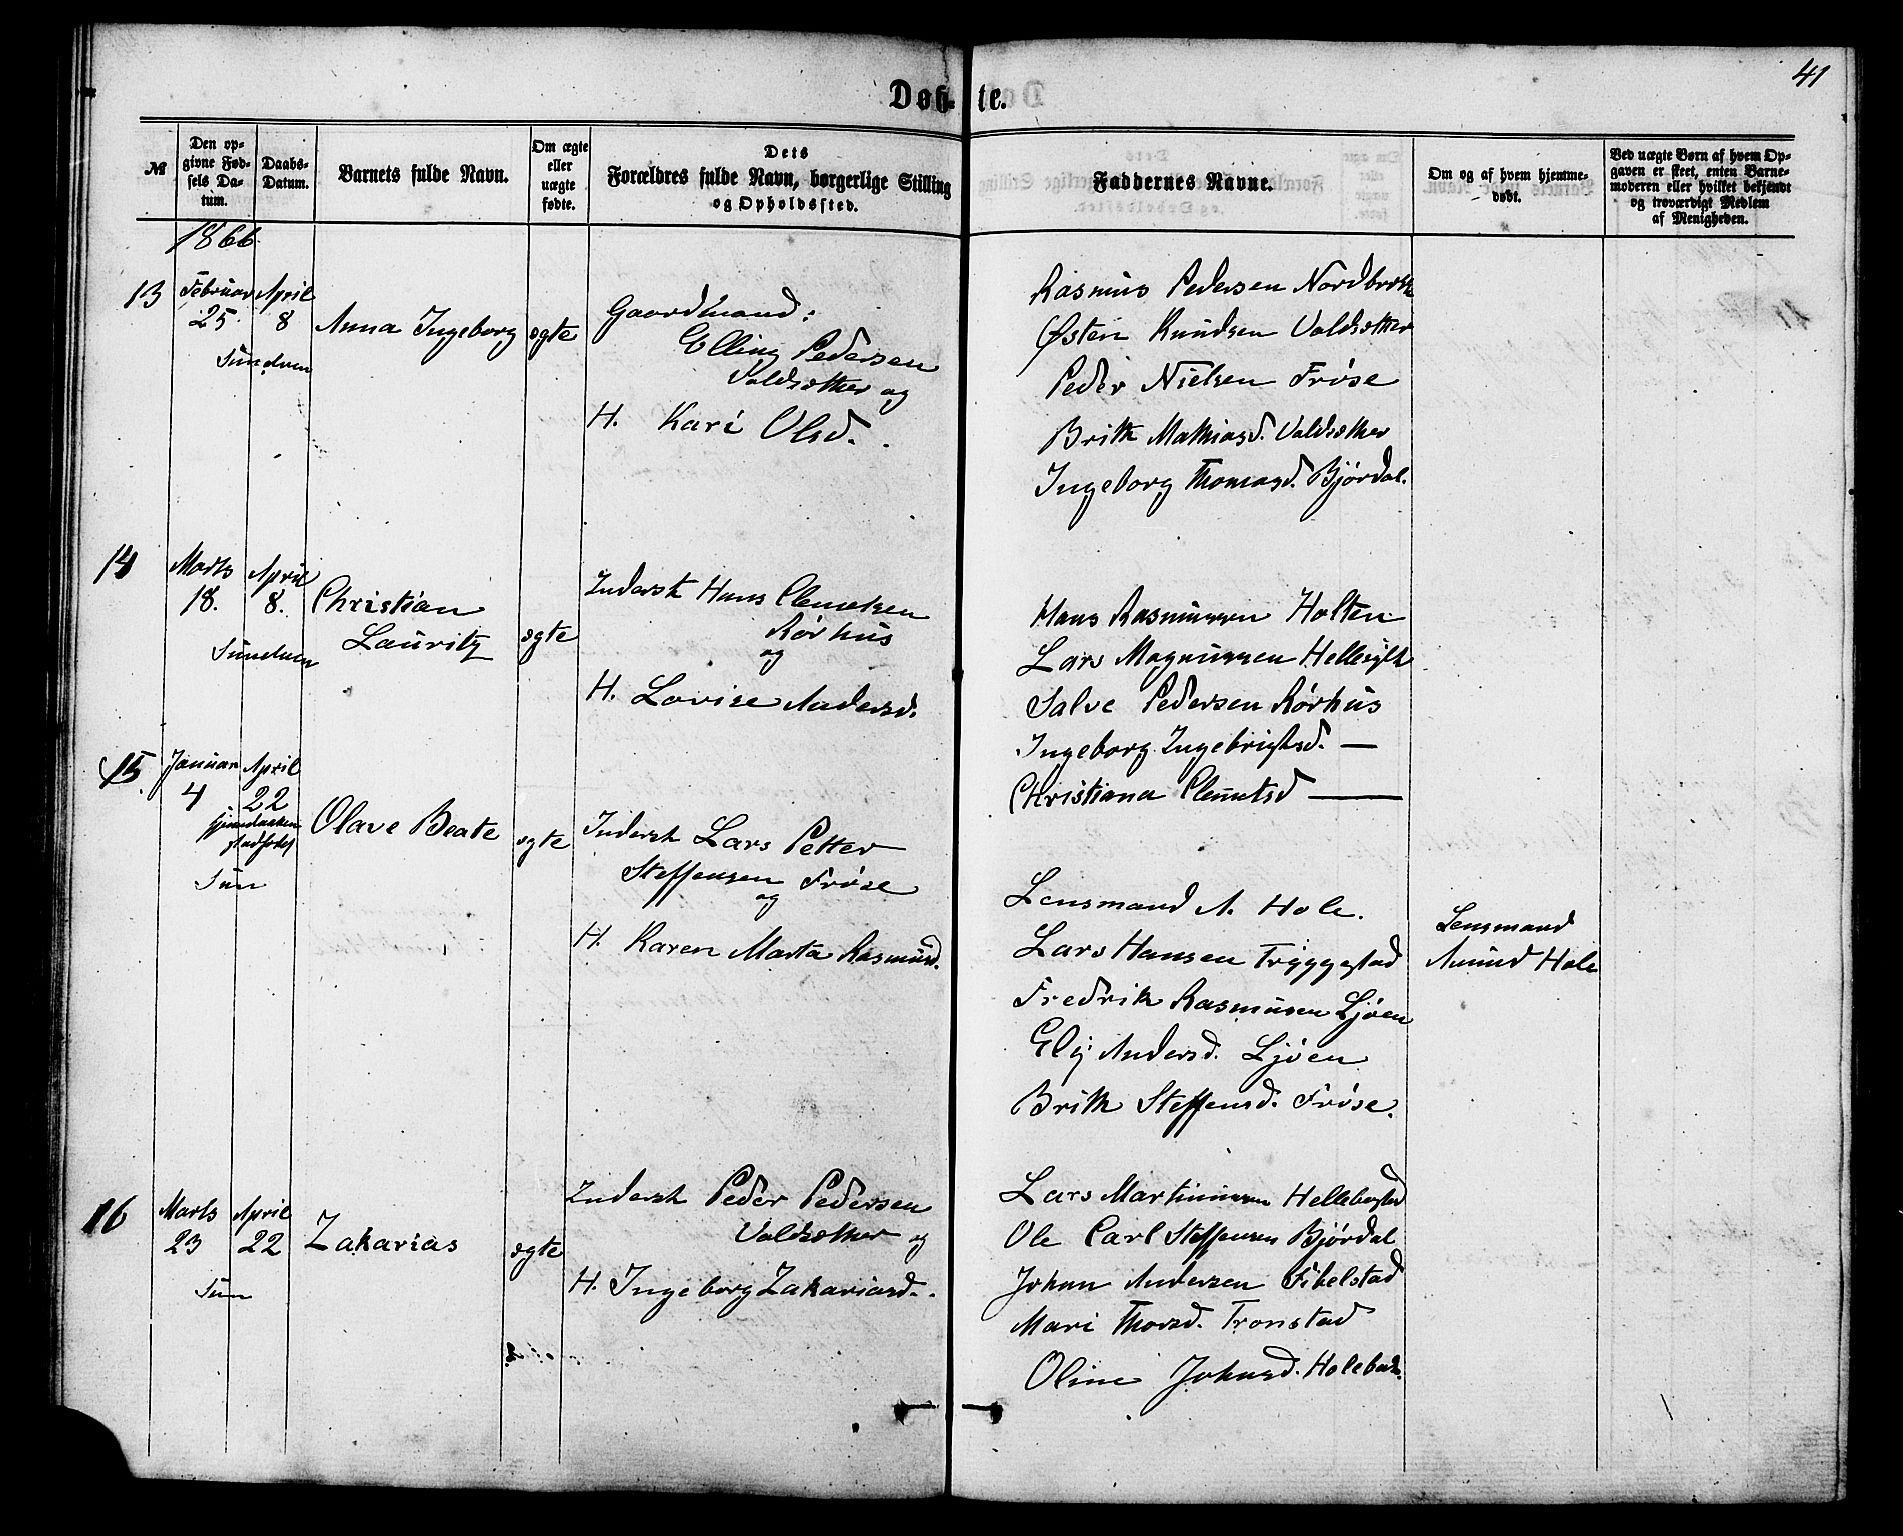 41
Døb- te.
№
Den op-
givne Fød-
sels Da-
tum.
Daabs-
Datum.
Barnets fulde Navn.
Om ægte
eller
uægte
fødte.
Dets
Forældres fulde Navn, borgerlige Stilling
og Opholdssted.
Faddernes Navne.
Om og af hvem hjemme-
døbt.
Ved uægte Børn af hvem Op-
gaven er skeet, enten Barne-
moderen eller hvilket bekjendt
og troværdigt Medlem
af Menigheden.
1866.
13
Februar
25.
April
8
Anna Ingeborg
ægte
Gaardmand:
Elling Pedersen
Valdsæther og
H. Kari Olsd.
Rasmus Pedersen
Østen Knudsen Valdsæther
Peder Nielsen Frøse
Brith Mathiasd. Valdsæther
Ingeborg Thomasd. Bjørdal.
14
Marts
18.
April
8.
Christian
Lauritz
ægte
Inderst Hans Clemetsen
Rørhus
og
H. Lovise Andersd.
Hans Rasmussen Holten
Lars Magnussen Hellesylt
Salve Pedersen Rørhus
Ingeborg Ingebrigtsd. —
Christiana Clemetsd —
15
Januar
4
April
22
Sun
Olave Beate
ægte
Inderst Lars Petter
Steffensen Frøse
og
H. Karen Marta Rasmusd.
Lensmand A. Hole.
Lars Hansen Tryggestad
Fredrik Rasmusen Ljøen
Eli Andersd. Ljøen
Brith Steffensd. Frøse.
Lensmand
Amund Hole
16
Marts
23
April
22
Sun
Zakarias
ægte
Inderst Peder Pedersen
Valdsæther og
H. Ingeborg Zakariasd.
Lars Martinussen Hellebostad
Ole Carl Steffensen Bjørdal
Johan Andersen Fibelstad
Mari Thorsd. Tronstad
Oline Johnsd.